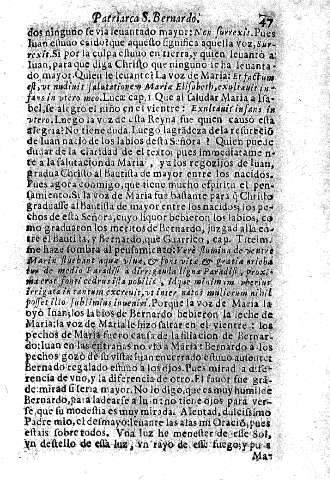 Patriarca S. Bernardo. 47
dos ninguno se via leuantado mayor: Non surrexit. Pues
Juan estuuo caido? que aquesto significa aquella voz, Sur-
rexit. Si por la culpa estuuo en tierra, y quien leuantò a
Juan, para que diga Christo que ninguno se ha leuanta-
do mayor? Quien le leuante? La voz de Maria: Et factum
est, vt audiuit salutationem Mariæ Elisabeth, exultauit in-
fans in vtero meo. Lucæ cap. 1 Que al saludar Maria a Isa-
bel, se alegrò el niño en el vientre: Exultauit infans in
vtero. Luego la voz de esta Reyna fue quien causò esta
alegria? No tiene duda. Luego la grãdeza de la
de Juan naciò de los labios desta Señora? Quien puede
dudar de la claridad de el texto, pues inmediatamen-
te a la salutacion da Maria, y a los regozijos de Iuan,
gradua Christo al Bautista de mayor entre los nacidos.
Pues agora conmigo, que tiene mucho espiritu el pen-
samiento. Si la voz de Maria fue bastante para q̃ Christo
graduasse al Bautista de mayor entre los nacidos; los pe-
chos de esta Señora, cuyo liquor bebieron los labios, co-
mo graduaron los meritos de Bernardo, juzgad alla en-
tre el Bautista, y Bernardo, que Guarrico, cap.
me haze sombra al pensamiento: Verè flumina de ventre
Mariæ fluebant aquæ viuæ, & fons vitæ & gratiæ
de medio Paradisi a dirigenda ligna Paradisi,
fonti
irrigata in tantum excreuit, vt inter natos mulierum nihil
posset illo sublimius inueniri. Porque la voz de Maria la
oyò Iuan; los labios de Bernardo bebieron la leche de
Maria: la voz de Maria le hizo saltar en el vientre: los
pechos de Maria fuero causa de la filiacion de Bernar-
do: Iuan en las entrañas no via a Maria: Bernardo a los
pechos gozò de su vista: Iuan encerrado estuuo ausente:
Bernado regalado estuuo a los ojos. Pues mirad a dife-
rencia de vno, y la diferencia de otro. El fauor fue grã-
de: mirad si seria mayor. No lo digo, que es muy humilde
Bernardo, para ladearse a Iuan: no tiene ojos para ver-
se, que su modestia es muy mirada. Alentad, dulcissimo
Padre mio, el desmayo: leuante las alas mi Oraciõ, pues
estais sobre todos. Vna luz he menester de esse Sol,
vn destello de essa luz, vn rayo de esse fuego; y pues
Ma-